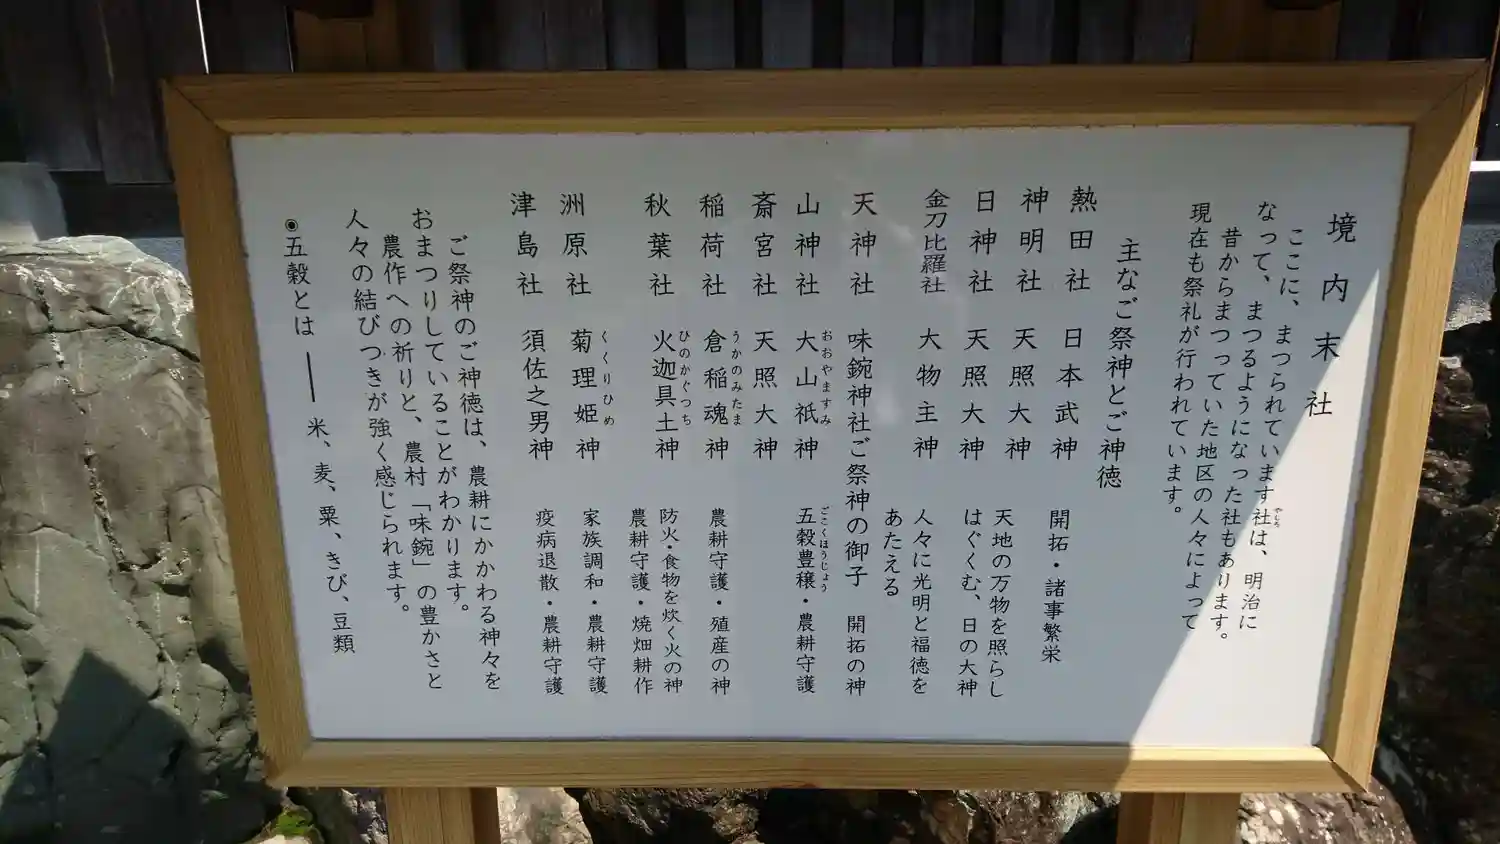 境内末社
ここに、まつられています社は、明治に
なって、まつるようになった社もあります。
昔からまつっていた地区の人々によって
現在も祭礼が行われています。
主なご祭神とご神徳
熱田社 日本武神 開拓・諸事繁栄
神明社 天照大神 天地の万物を照らし
日神社 天照大神 はぐくむ、日の大神
金刀比羅社 大物主神 人々に光明と福徳を
あたえる
天神社 味鋺神社ご祭神の御子 開拓の神
山神社 大山祇神 五穀豊穣・農耕守護
斎宮社 天照大神
稲荷社 倉稲魂神 農耕守護・殖産の神
秋葉社 火迦具土神 防火・食物を炊く火の神
農耕守護・焼畑耕作
洲原社 菊理姫神 家族調和・農耕守護
津島社 須佐之男神 疫病退散・農耕守護
ご祭神のご神徳は、農耕にかかわる神々を
おまつりしていることがわかります。
農作への祈りと、農村「味鋺」の豊かさと
人々の結びつきが強く感じられます。
◉五穀とは――米、麦、粟、きび、豆類
やしろ
おおやますみ
ごこくほうじょう
うかのみたま
ひのかぐつち
くくりひめ